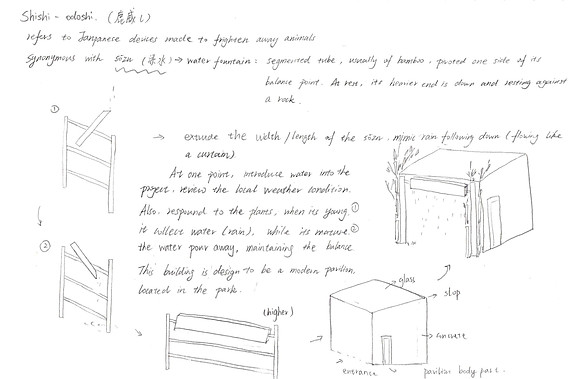 Shishi-odoshi. (鹿威し)
refers to Janpanese devices made to frighten away animals
Synonymous with sōzu (添水) → water fountain : segmented tube, usually of bamboo, pivoted one side of its
balance point. At rest, its heavier end is down and resting against
a rock.
①
→ extrude the width/length of the sōzu. mimic rain following down (flowing like
a curtain)
At one point, introduce water into the
project. review the local weather condition.
Also respound to the plants, when its young, ①
it collect water (rain), while its mature. ②
the water pour away, maintaining the balance
This building is design to be a modern pavilion,
located in the park.
②
(higher)
glass
slop
concrete
entrance
pavilion body part.